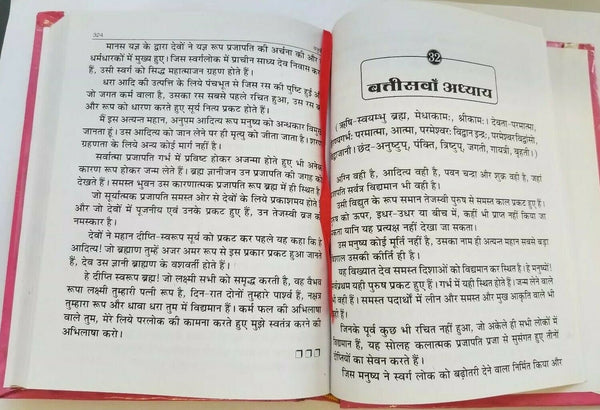 324
मानस यज्ञ के द्वारा देवों ने यज्ञ रूप प्रजापति की अर्चना की और
धर्मधारकों में मुख्य हुए। जिस स्वर्गलोक में प्राचीन साध्य देव निवास कर
हैं, उसी स्वर्ग को सिद्ध महात्माजन ग्रहण होते हैं।
धरा आदि की उत्पत्ति के लिए पंचभूत से जिस रस की पुष्टि हुई
जो जगत कर्म वाला है, उसका रस सबसे पहले रचित हुआ, उस रस
और रूप को धारण करते हुए सूर्य नित्य प्रकट होते हैं।
मैं इस अत्यन्त महान, अनुपम आदित्य रूप मनुष्य को अन्धकार विमु
जानता हूं। उस आदित्य को जान लेने पर ही मृत्यु को जीता जाता है। शरण
ग्रहणता के लिए अन्य कोई मार्ग नहीं है।
सर्वात्मा प्रजापति गर्भ में प्रविष्ट होकर अजन्मा होते हुए भी अनेक
कारण रूप होकर जन्म लेते हैं। ब्रह्म ज्ञानीजन उन प्रजापति की जगह को
देखते हैं। समस्त भुवन उस कारणात्मक प्रजापति रूप ब्रह्म में ही स्थित है
जो सूर्यात्मक प्रजापति समस्त ओर से देवों के लिए प्रकाशमय होते हैं
और जो देवों में पूजनीय एवं उनके प्रकट हुए हैं, उन तेजस्वी ब्रज को
नमस्कार है।
देवों ने महान दीप्ति-स्वरूप सूर्य को प्रकट कर पहले यह कहा कि हे
आदित्य! जो ब्राह्मण तुम्हें अजर अमर रूप से इस प्रकार प्रकट हुआ जानते
हैं, देव उस ज्ञानी ब्राह्मण के वशवर्ती होते हैं।
हे दीप्ति स्वरूप ब्रह्म! जो लक्ष्मी सभी को समृद्ध करती है, वह वैभव
रूपा लक्ष्मी तुम्हारी पत्नी रूप है, दिन-रात दोनों तुम्हारे पार्श्व हैं, नक्षत्र
तुम्हारा रूप और धावा धरा तुम में विद्यमान हैं। कर्म फल की अभिलाषा
वाले तुम, मेरे लिये परलोक की कामना करते हुए मुझे स्वतंत्र करने की
अभिलाषा करो।
32
बत्तीसवाँ अध्याय
(ऋषि-स्वयम्भु ब्रह्म, मेधाकामः, श्रीकामः। देवता-परमात्मा,
परमात्मा, आत्मा, परमेश्वरः विद्वान इन्द्रः, परमेश्वरविद्वांसौ,
छंद-अनुष्टुप्, पंक्ति, त्रिष्टुप्, जगती, गायत्री, बृहती।)
अग्नि वही है, आदित्य वही है, पवन चन्द्रा और शुक्र वही है, जहां
प्रजापति सर्वत्र विद्यमान भी वही है।
उसी विद्युत के रूप समान तेजस्वी पुरुष से समस्त काल प्रकट हुए हैं।
को ऊपर, इधर-उधर या बीच में, कहीं भी प्राप्त नहीं किया जा
सकता यानि यह प्रत्यक्ष देखा नहीं जा सकता।
उस मनुष्य कोई मूर्ति नहीं है, उसका नाम ही अत्यन्त महान सबसे बड़ा
उसकी कीर्ति ही है।
यह विख्यात देव समस्त दिशाओं को विद्यमान कर स्थित है। हे मनुष्यों!
यही पुरुष प्रकट हुए हैं। गर्भ में यही स्थित होते हैं। जन्म लेने वाले
भी वही हैं। समस्त पदार्थों में लीन और समस्त और मुख आकृति वाले भी
वही हैं।
जिनके पूर्व कुछ भी रचित नहीं हुआ, जो अकेले ही सभी लोकों में
विद्यमान हैं, यह सोलह कलात्मक प्रजापति प्रजा से सुसंगत हुए तीनों
दीप्तियों का सेवन करते हैं।
जिस मनुष्य ने स्वर्ग लोक को बढ़ोतरी देने वाला निर्मित किया और